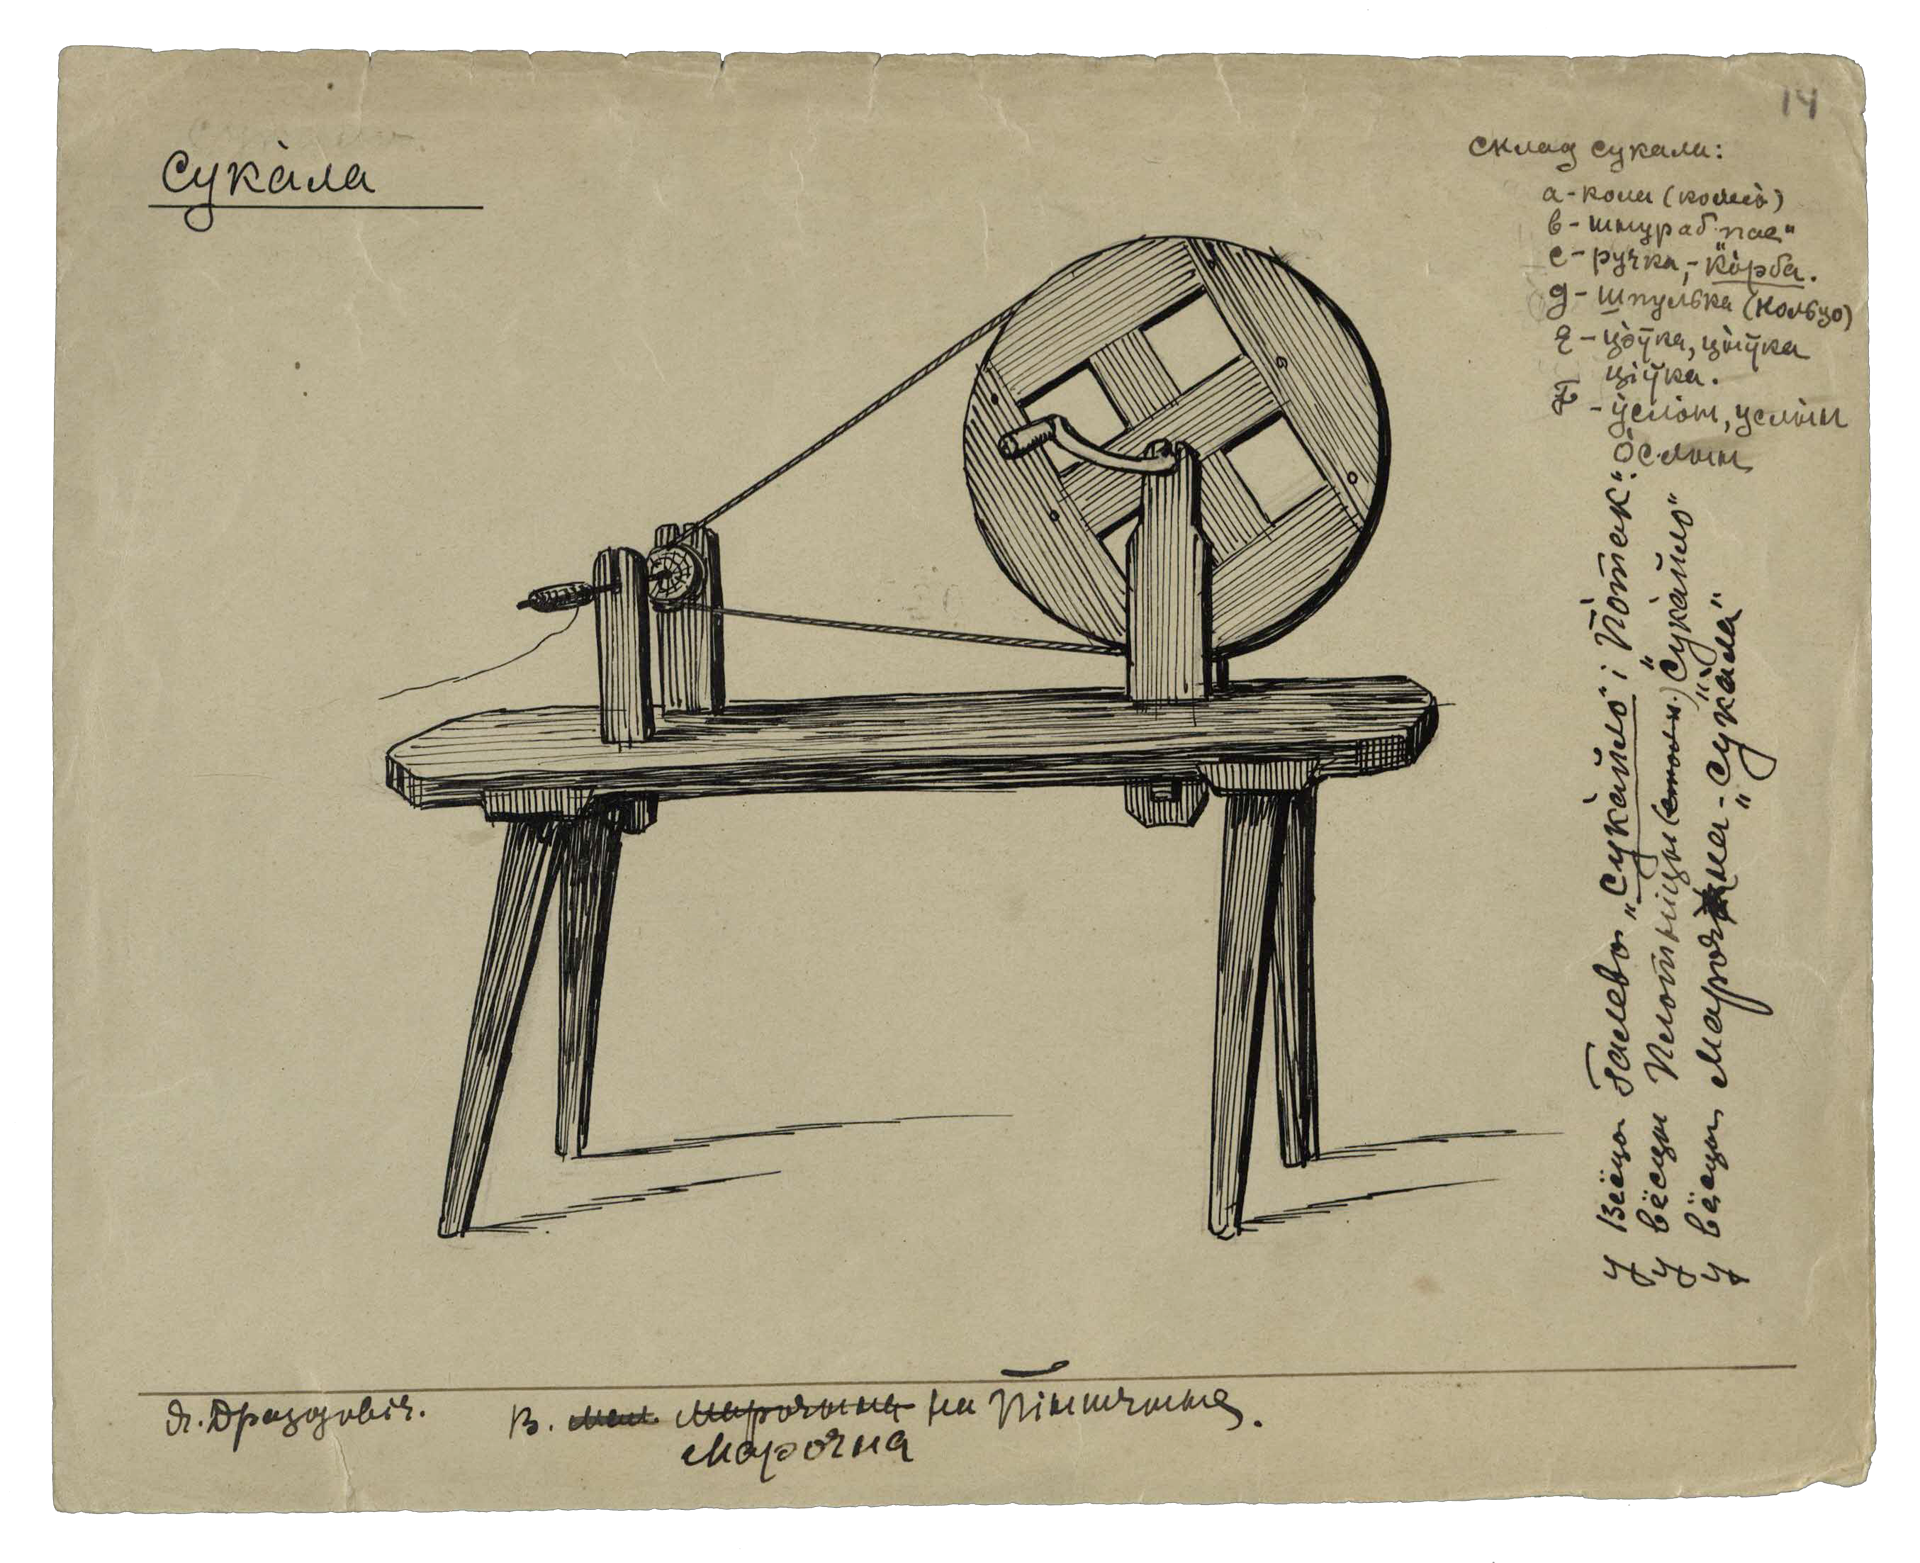 14
Сукала
склад сукалы:
а - кола (колесо)
в - шнураб "пас"
с - ручка, - "корба.
д - шпулька (кольцо)
е - цэўка, цыўка
ціўка.
f - ўслон, услын
ослын
у вёсцы Галево „Сукайло" і „Поток".
у вёсцы Плотніцы „Сукайло"
у вёсцы Марочна - „Сукала"
Я. Драздовіч.
В. мал. Марочына на Піншчыне.
Марочна